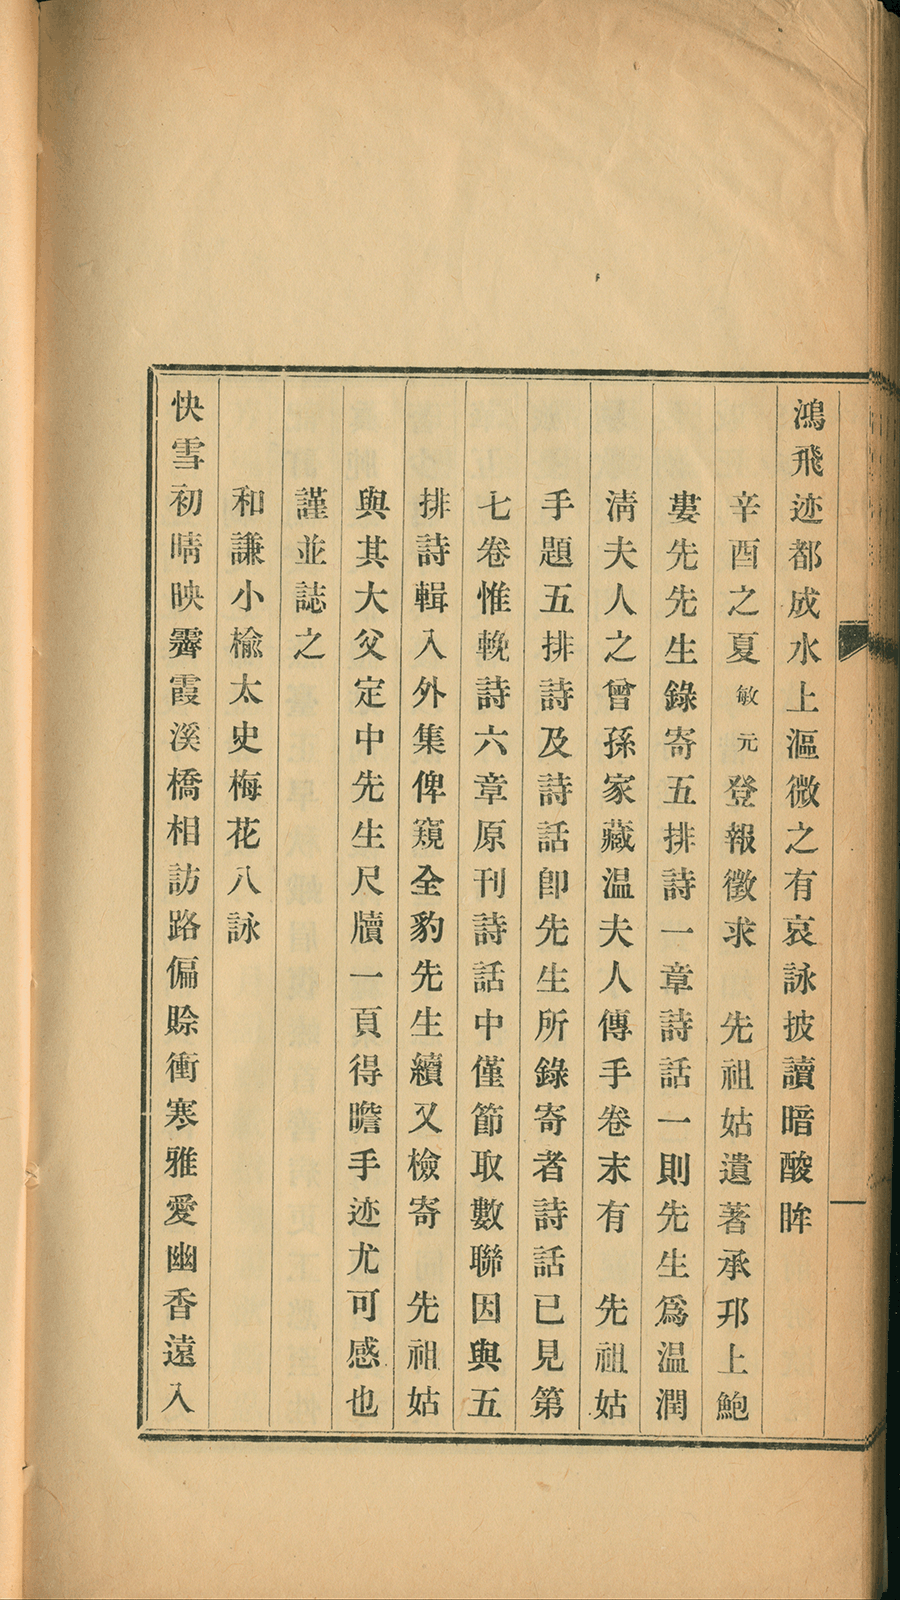 鴻飛迹都成水上漚微之有哀詠披讀暗酸眸
辛酉之夏敏元登報徵求　先祖姑遺著承邗上鮑
婁先先生錄寄五排詩一章詩話一則先生爲温潤
淸夫人之曾孫家藏温夫人傳手卷末有　先祖姑
手題五排詩及詩話卽先生所錄寄者詩話已見第
七卷惟輓詩六章原刊詩話中僅節取數聯因與五
排詩輯入外集俾窺全豹先生續又檢寄　先祖姑
與其大父定中先生尺牘一頁得瞻手迹尤可感也
謹並誌之
和謙小楡太史梅花八詠
快雪初晴映霽霞溪橋相訪路偏賒衝寒雅愛幽香遠入